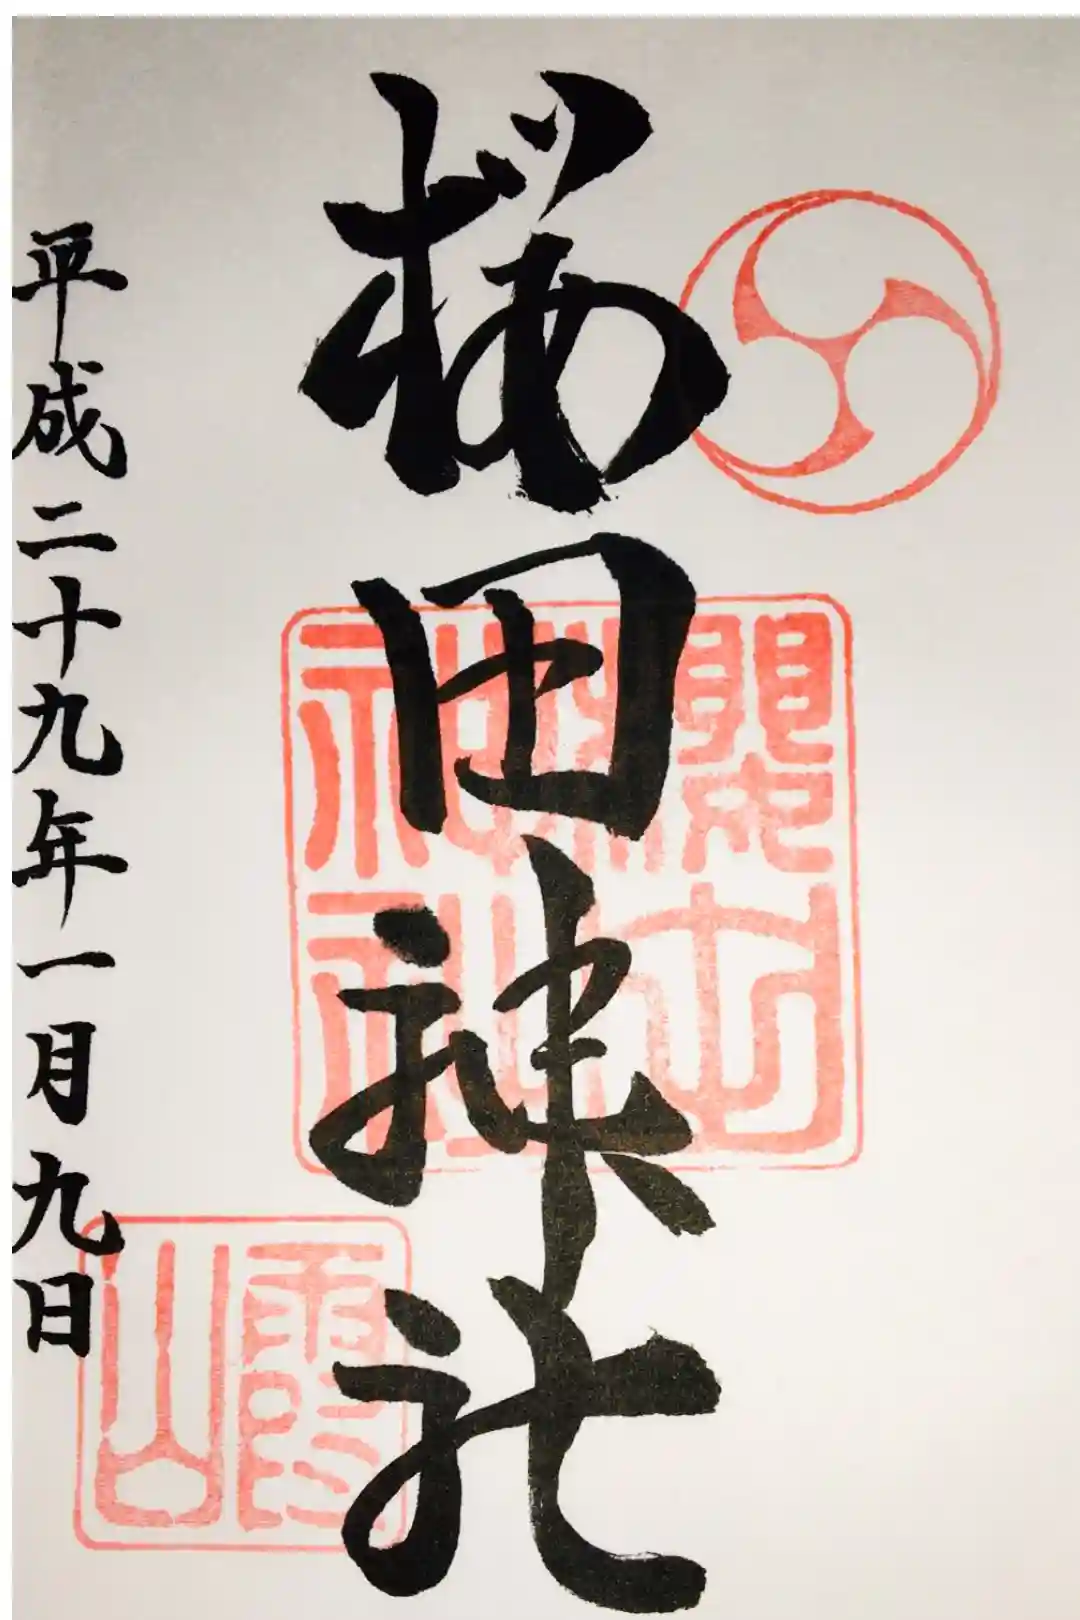 桜田神社
平成二十九年一月九日